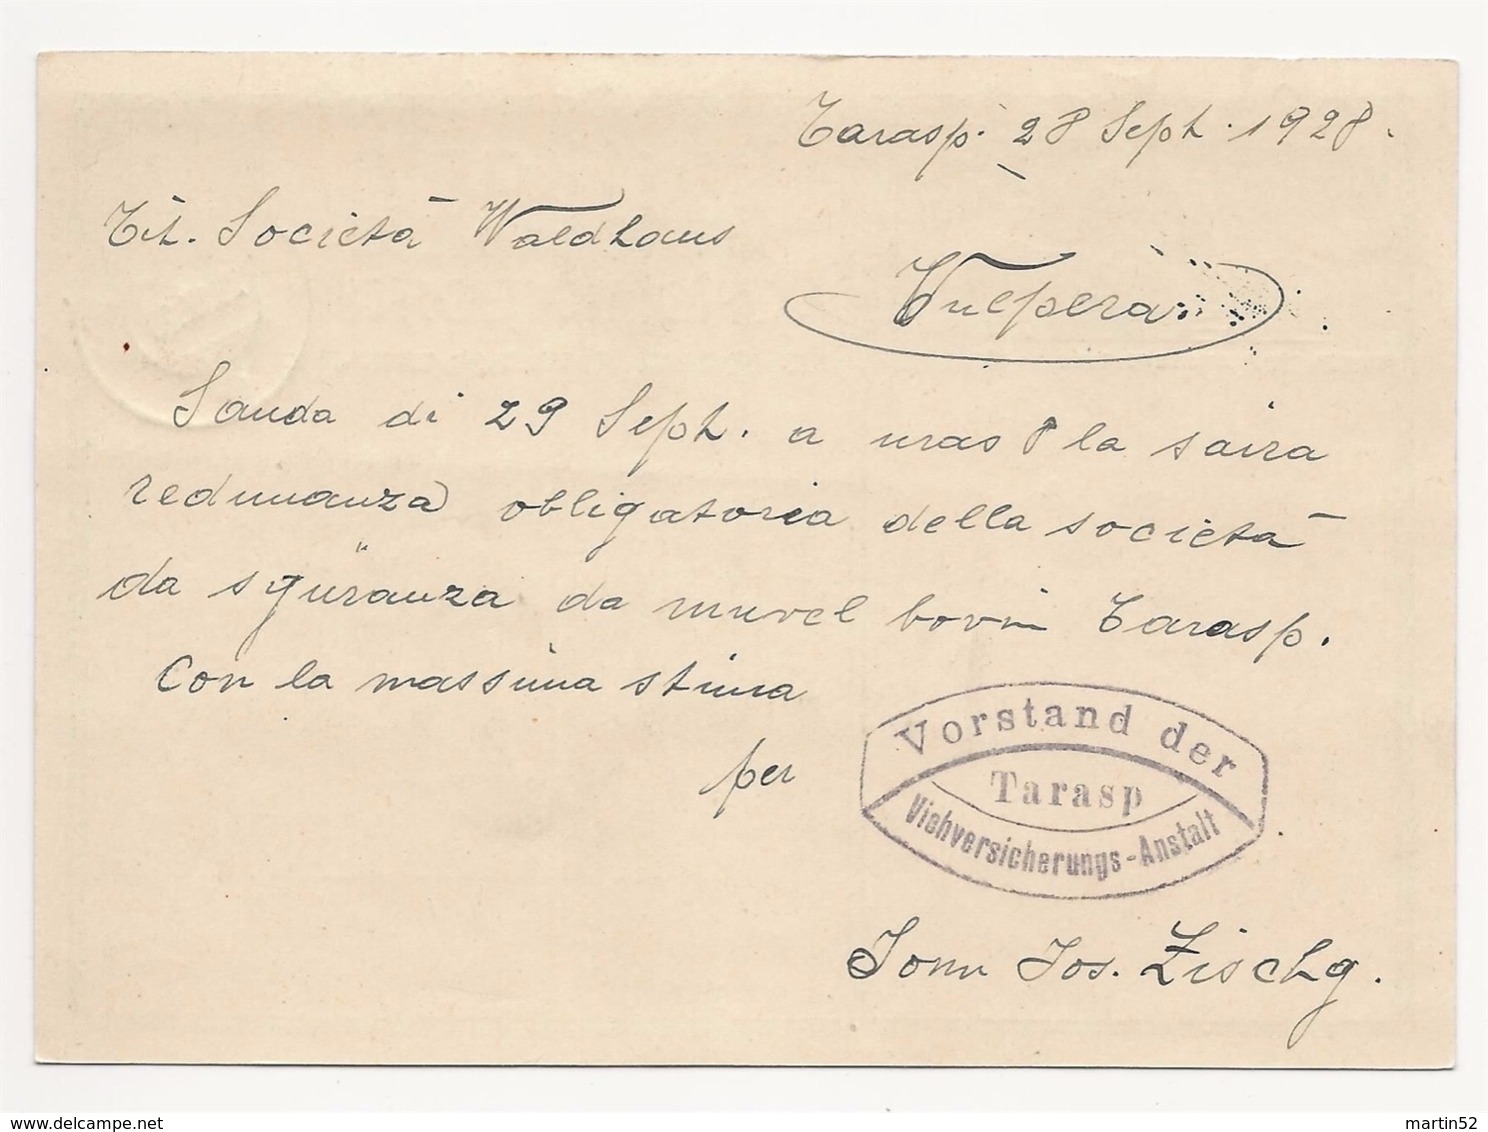 Tarasp. 28 Sept. 1928.
Tit. Società Waldhaus
Vulpera.
Sanda di 29 Sept. a uras 8 la saira
redunanza obligatoria della società
da sgüranza da muvel bovin Tarasp.
Con la massima stima
per
Vorstand der
Tarasp
Viehversicherungs-Anstalt
Jonn Jos. Zischg.
martin52